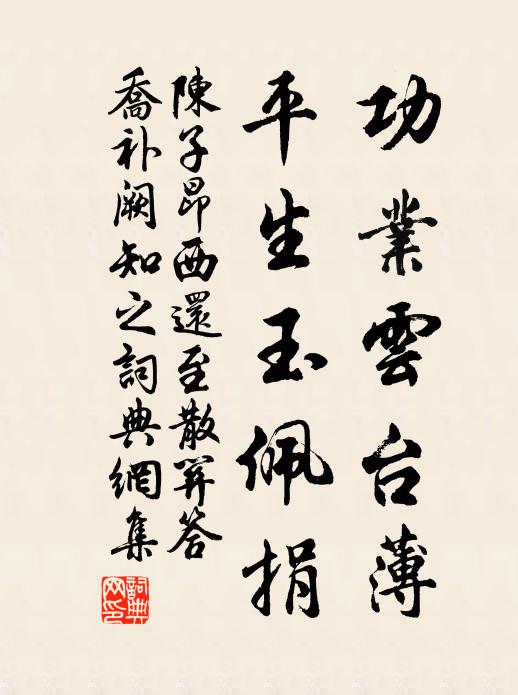 功業雲台薄
平生玉佩捐
陳子昂西還至散關答
喬补阙知之詞典網集
詞典網印